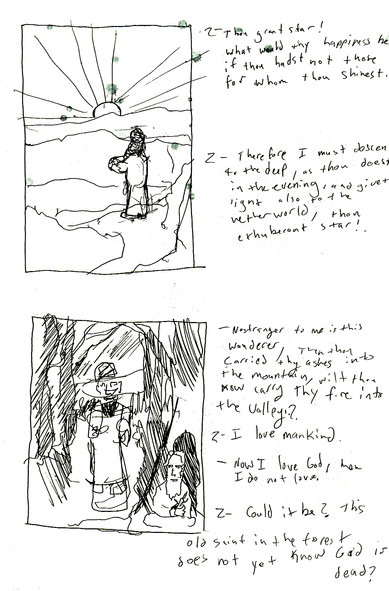 Z- Thou great star!
what would thy happiness be
if thou hadst not those
for whom thou shinest.
Z- Therefore I must descen
to the deep, as thou doest
in the evening, and givet
light also to the
netherworld, thou
exhuberant star!
- No stranger to me is this
wanderer, Then thou
carried thy ashes into
the mountain, wilt thou
now carry thy fire into
the valleys?
Z- I love mankind.
- Now I love God, man
I do not love.
Z- Could it be? This
old saint in the forest
does not yet know God is
dead?